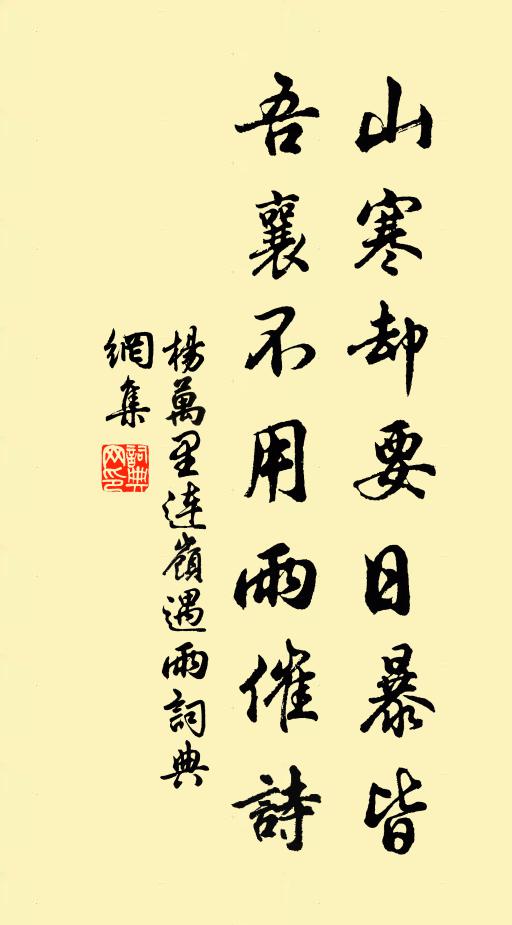 山寒却要日暴皆
吾襄不用雨催詩
楊萬里連嶺遇雨詞典
網集
詞典網印